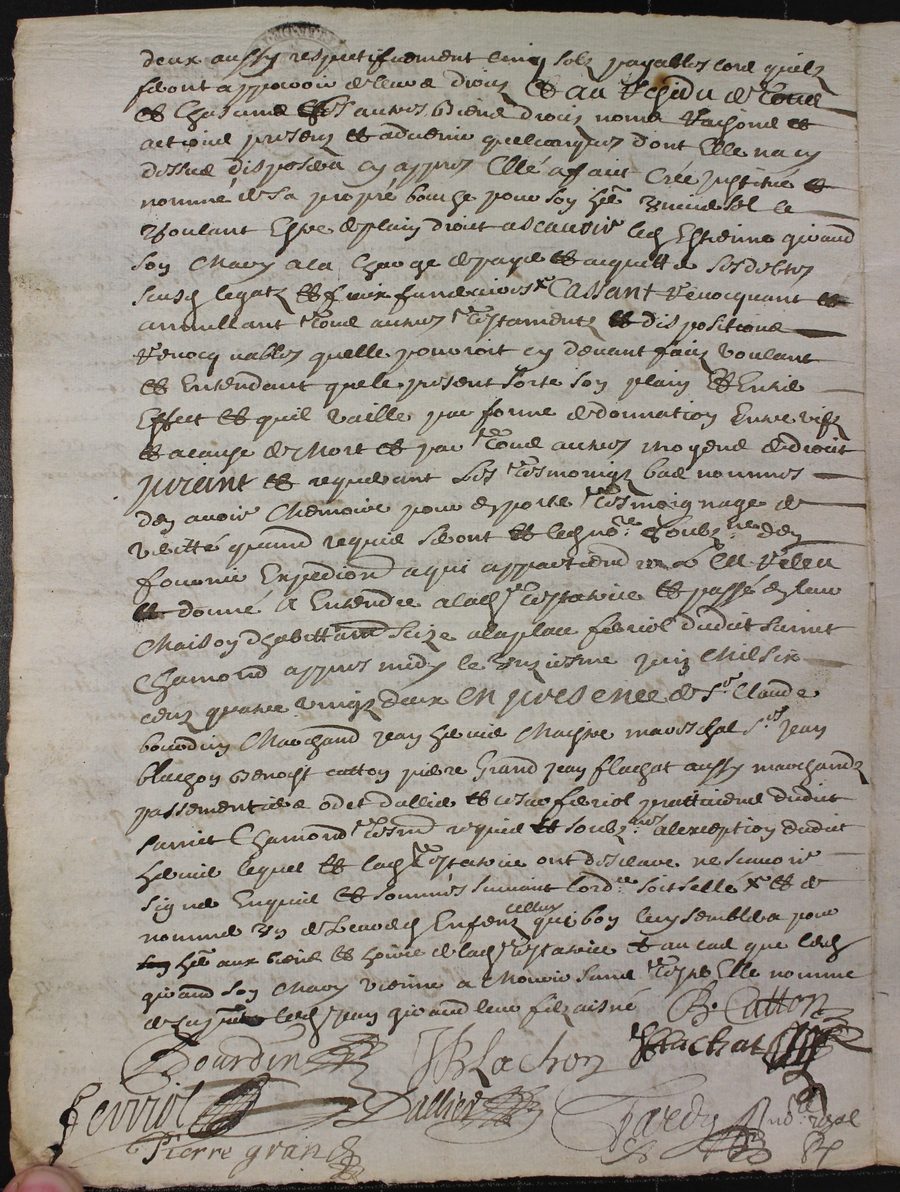 deux aussy respectifvement cinq solz payables lors quilz
feront apparoir de leurs droicts Et au residu de tous
et chascuns ses autres biens droictz noms raisons et
actions presens et advenir quelconques dont Elle na cy
dessus disposé cy appres Elle a faict créé institué et
nommé de sa propre bouche pour son her universel le
voulant Estre de plain droit ascavoir led Estienne girand
son mary a la charge de payer et acquitter ses debtes
susd legatz et fraix funerairesx Cassant revocquant et
annullant tous autres testaments et dispositions
revocquables quelle pourroit cy devant fait voulant
et Entendant que le present sorte son plain et Entier
Effect et quil vaille par forme de donnation Entre vifz
et a cause de mort et par tous autres moyens de droict
priant et requerant les tesmoingz bas nommes
den avoir memoire pour en porter tesmoignage de
veritté quand requis seront et led nore soubz ne den
fournir Expedions a qui appartiend Leu releu
et donné a Entendre a lad testatrice et passé en leur
maison dhabittaon size a la place feriol dudit sainct
Chamond appres midy le unziesme juin mil six
cens quatre vingtz deux en presence de sr Claude
bourdin marchand jean maistre mareschal srs jean
blachon benoist catton pierre grand jean flachat aussy marchandz
passementiers odet dallier et feriol pratticiens dudict
sainct Chamond tesms requis et soubznes a lexception dudict
lequel et lad testatrice ont desclaré ne scavoir
signé Enquis et sommés suivant lordre soit sellé x et de
nommer un de leursd Enfens celluy qui bon luy semblera pour
her aux biens et hoirie de lad testatrice et au cas que led
girand son mary vienne a mourir sans tester Elle nomme
des a led jean girand leur fils aisné B. Catton
Bourdin JBLachon Flachat
Ferriol Dallier Tardy no.re royal
Pierre grand